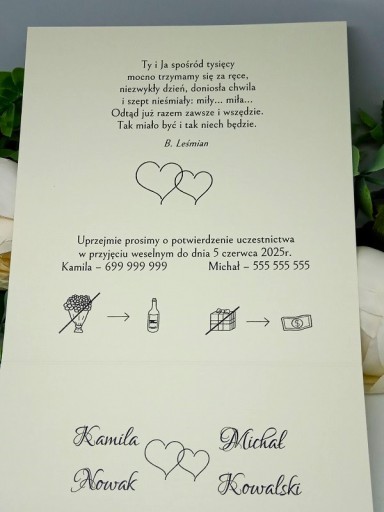 Ty i Ja spośród tysięcy
mocno trzymamy się za ręce,
niezwykły dzień, doniosła chwila
i szept nieśmiały: miły... miła...
Odtąd już razem zawsze i wszędzie.
Tak miało być i tak niech będzie.
B. Leśmian
Uprzejmie prosimy o potwierdzenie uczestnictwa
w przyjęciu weselnym do dnia 5 czerwca 2025r.
Kamila – 699 999 999 Michał – 555 555 555
Kamila Michał
Nowak Kowalski